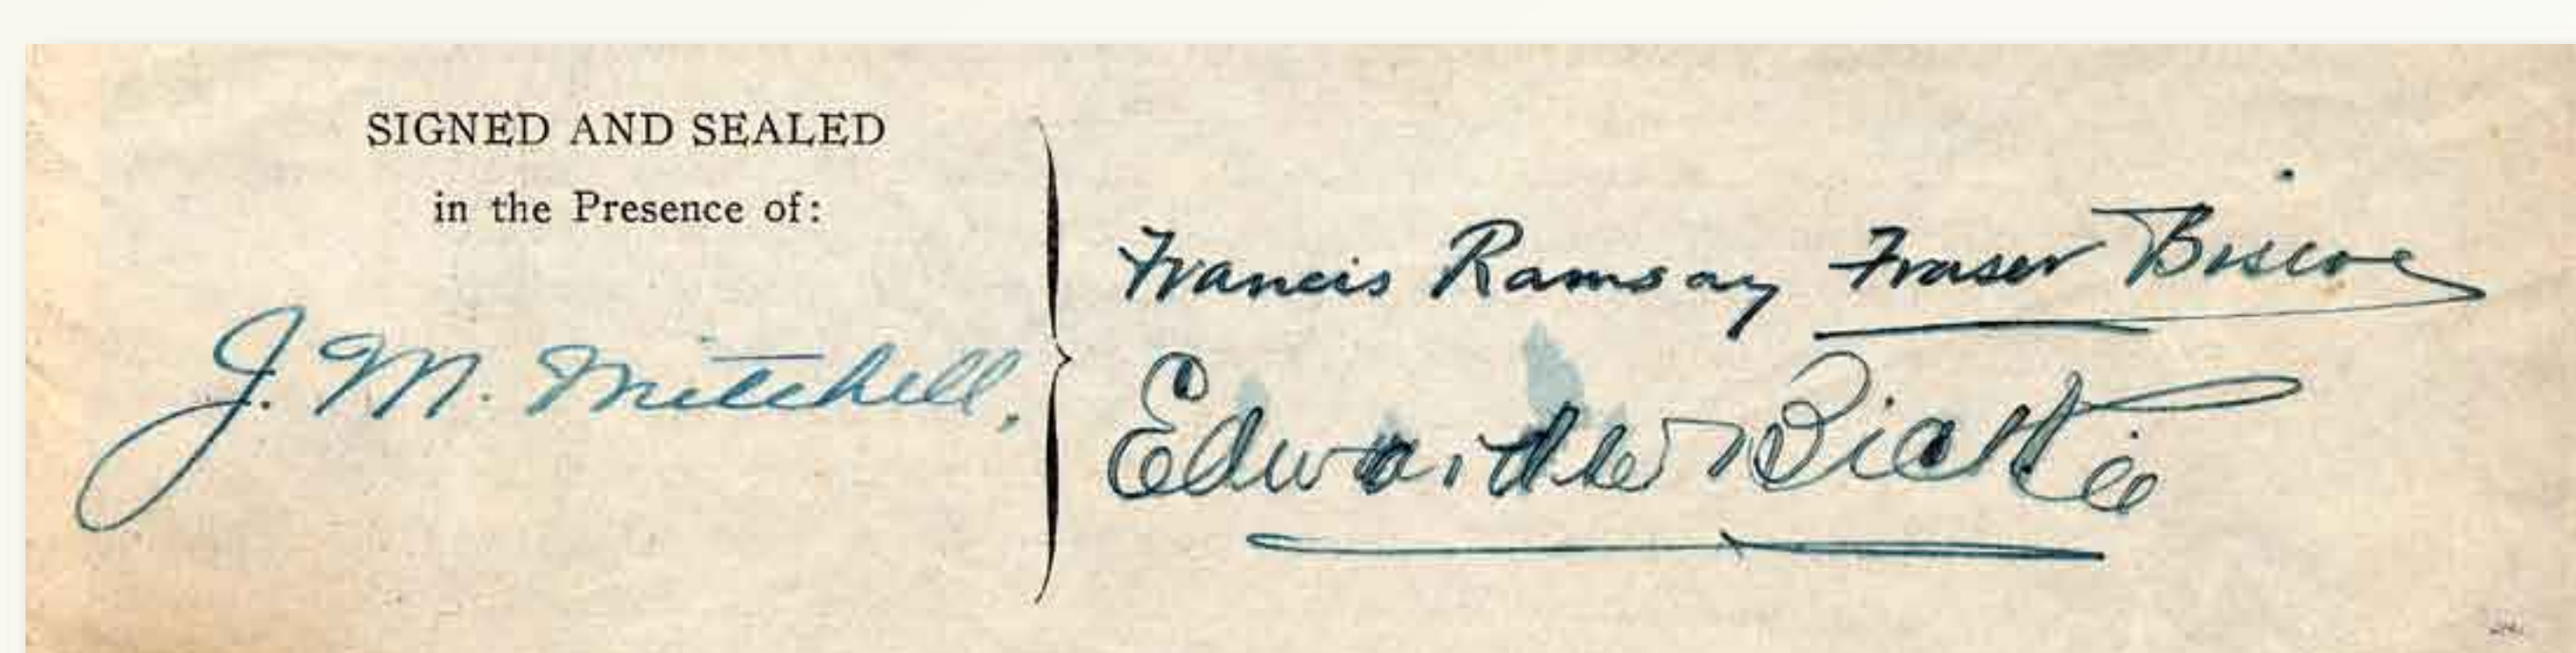 SIGNED AND SEALED
in the Presence of:
J. M. Mitchell.
Francis Ramsay Fraser Biscoe